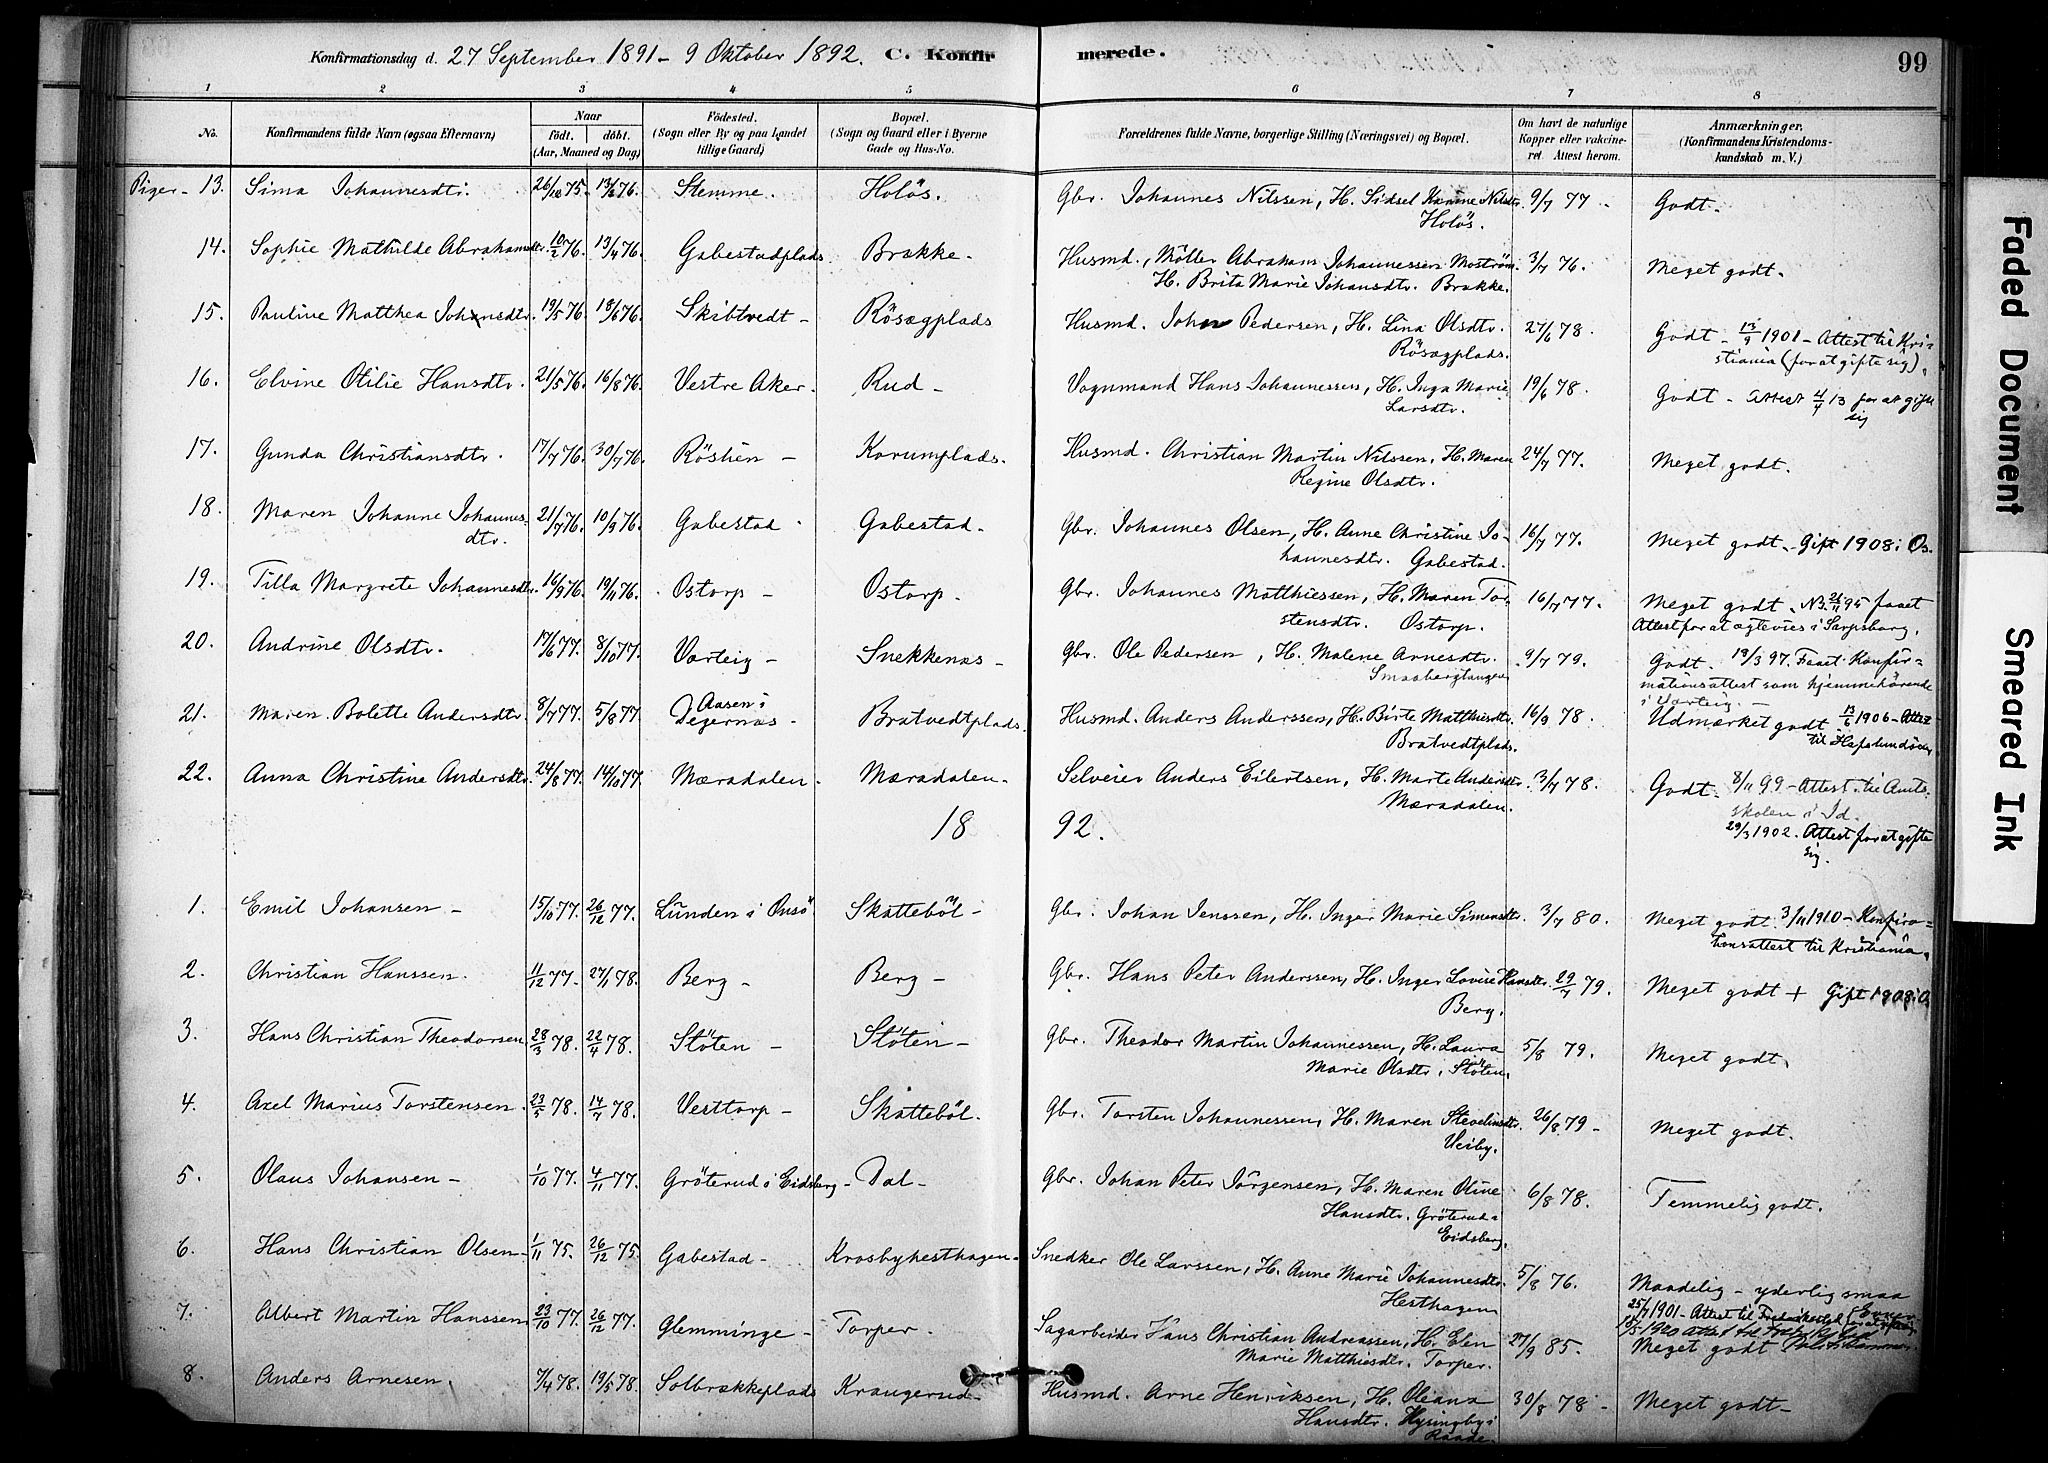 Konfirmationsdag d. 27 September 1891 - 9 Oktober 1892. C. Konfirmerede. 99
1 2 3 4 5 6 7 8
No. Konfirmandens fulde Navn (ogsaa Efternavn) Naar født. døbt. (Aar, Maaned og Dag) Fødested. (Sogn eller By og paa Landet tillige Gaard) Bopæl. (Sogn og Gaard eller i Byerne Gade og Hus-No. Forældrenes fulde Navne, borgerlige Stilling (Næringsvei) og Bopæl. Om havt de naturlige Kopper eller vakcineret Attest herom. Anmærkninger. (Konfirmandens Kristendomskundskab m. V.)
Piger - 13. Sima Johannesdtr. 75. 76. Stemme. Holös. Gbr. Johannes Nilssen, H. Sidsel Karine Nilsdtr. 9/7 77 - Godt.
Holös.
14. Sophie Mathilde Abrahamsdtr. 10/2 76. 13/4 76. Gabestadplads. Brakke. Husmd., Möller Abraham Johannessen Moström. 3/7 76. Meget godt.
H. Brita Marie Johansdtr. Brakke.
15. Pauline Matthea Johansdtr. 19/5 76. 18/6 76. Skibtvedt - Rösægplads Husmd. Johan Pedersen, H. Lina Olsdtr. 27/6 78. Godt - 13/9 1901 - Attest til Kri-
Rösægplads. stiania (for at gifte sig).
16. Elvine Otilie Hansdtr. 21/5 76. 16/8 76. Vestre Aker. Rud - Vognmand Hans Johannessen, H. Inga Marie 19/6 78. Godt - Attest 4/4 13 for at gifte
Larsdtr. sig
17. Gunda Christiansdtr. 17/7 76. 30/7 76. Röstien - Karumplads. Husmd. Christian Martin Nilssen, H. Maren 24/7 77. Meget godt.
Regine Olsdtr.
18. Maren Johanne Johannes- 21/7 76. 10/9 76. Gabestad Gabestad. Gbr. Johannes Olsen, H. Anne Christine Jo- 16/7 77. Meget godt - Gift 1908 i Os.
dtr. hannesdtr. Gabestad.
19. Tilla Margrete Johannesdtr. 16/9 76. 19/11 76. Ostorp - Ostorp. Gbr. Johannes Matthiessen, H. Maren Tor- 16/7 77. Meget godt. NB. 26/11 95 faaet
stensdtr. Ostorp. Attest for at ægtevies i Sarpsborg.
20. Andrine Olsdtr. 17/6 77. 8/10 77. Varteig - Snekkenæs - Gbr. Ole Pedersen, H. Malene Arnesdtr. 9/7 79. Godt. 19/3 97. Faaet Konfir-
Smaabergtangen mationsattest som hjemmehörende
i Varteig. -
21. Maren Bolette Andersdtr. 8/7 77. 5/8 77. Aasen i Degernæs - Bratvedtplads. Husmd. Anders Anderssen, H. Birte Matthisdtr. 16/9 78. Udmærket godt 13/6 1906 - Attest
Bratvedtplads. til Hafslundsöen
22. Anna Christine Andersdtr. 24/8 77. 14/10 77. Mæradalen. Mæradalen. Selveier Anders Eilertsen, H. Marte Andersdtr. 3/7 78. Godt. 8/11 99 - Attest til Amts-
Mæradalen. skolen i Id.
18 92. 29/3 1902. Attest for at gifte
sig.
1. Emil Johansen - 15/10 77. 26/12 77. Lunden i Onsö Skatteböl - Gbr. Johan Jenssen, H. Inger Marie Simensdtr. 3/7 80. Meget godt. 3/11 1910 - Konfirma-
tionsattest til Kristiania.
2. Christian Hanssen. 11/12 77. 27/1 78. Berg - Berg - Gbr. Hans Peter Anderssen, H. Inger Lovise Hansdtr. 29/7 79. Meget godt + Gift 1908 i O.
Berg.
3. Hans Christian Theodorsen 28/3 78. 22/4 78. Stöten - Stöten - Gbr. Theodor Martin Johannessen, H. Laura 5/8 79. Meget godt.
Marie Olsdtr. Stöten.
4. Axel Marius Torstensen. 23/5 78. 14/7 78. Vesttorp - Skatteböl. Gbr. Torsten Johannessen, H. Maren Stevelinsdtr. 26/8 79 - Meget godt.
Veiby.
5. Olaus Johansen - 1/10 77. 4/11 77. Gröterud i Eidsberg - Dal - Gbr. Johan Peter Jörgensen, H. Maren Oline 6/8 78. Temmelig godt.
Hansdtr. Gröterud i
Eidsberg.
6. Hans Christian Olsen 1/11 75. 26/12 75. Gabestad - Krosbyhesthagen - Snedker Ole Larssen, H. Anne Marie Johannesdtr. 5/8 76. Maadelig - yderlig smaa
Hesthagen Evner
7. Albert Martin Hanssen 23/10 77. 26/12 77. Glemminge - Torper. Sagarbeider Hans Christian Andreassen, H. Elen 27/9 85. 25/7 1901 - Attest til Fredrikstad
Marie Matthiesdtr. Torper. Meget godt
8. Anders Arnesen. 7/4 78. 19/5 78. Solbrækkeplads Kraugerud - Husmd. Arne Henriksen, H. Oliana 30/8 78 - Meget godt -
Hansdtr. Hysingby i
Raade.
Faded Document
Smeared Ink